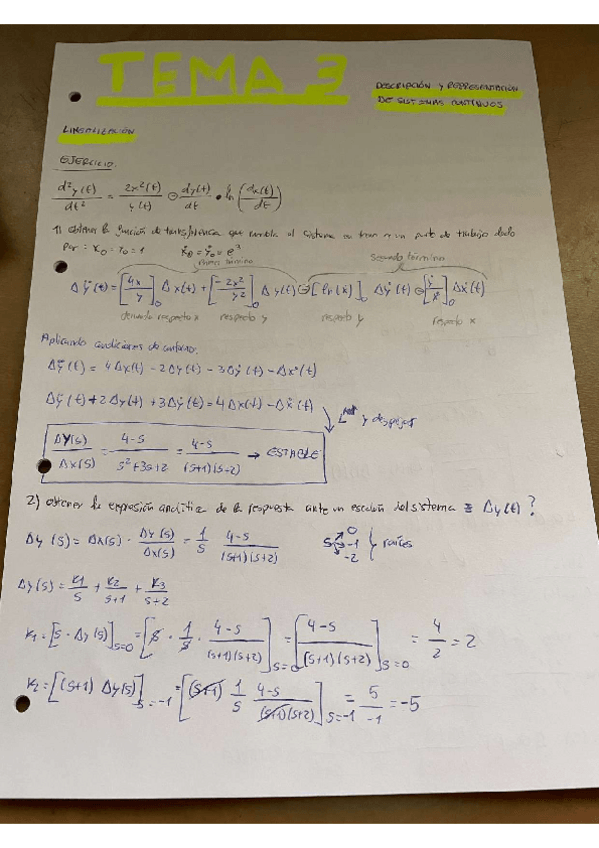 TEMA 3
DESCRIPCIÓN Y REPRESENTACIÓN
DE SISTEMAS CONTINUOS
LINEALIZACIÓN
EJERCICIO.
d²y(t)/dt² = 2x²(t)/y(t) ⊖ dy(t)/dt • ln (dx(t)/dt)
1) obtener la función de transferencia que cambia el sistema en torno a un punto de trabajo dado
por: x₀ = y₀ = 1 ẋ₀ = ẏ₀ = e³
Primer término Segundo término
Δÿ(t) = [4x/y]₀ Δx(t) + [-2x²/y²]₀ Δy(t) ⊖ [ln(ẋ)]₀ Δẏ(t) ⊖ [ẏ/ẋ]₀ Δẋ(t)
derivando respecto x respecto y respecto ẏ respecto x
Aplicando condiciones de entorno:
Δÿ(t) = 4Δx(t) - 2Δy(t) - 3Δẏ(t) - Δẋ(t)
Δÿ(t) + 2Δy(t) + 3Δẏ(t) = 4Δx(t) - Δẋ(t)
y despejar
ΔY(s)/ΔX(s) = 4-s/s²+3s+2 = 4-s/(s+1)(s+2) → ESTABLE
2) obtener la expresión analítica de la respuesta ante un escalón del sistema Δy(t)?
Δy(s) = Δx(s) · Δy(s)/Δx(s) = 1/s 4-s/(s+1)(s+2) s 0 -1 -2 } raíces
Δy(s) = K1/s + K2/s+1 + K3/s+2
K1 = [s · Δy(s)]s=0 = [s · 1/s · 4-s/(s+1)(s+2)]s=0 = [4-s/(s+1)(s+2)]s=0 = 4/2 = 2
K2 = [(s+1) Δy(s)]s=-1 = [(s+1) 1/s 4-s/(s+1)(s+2)]s=-1 = 5/-1 = -5